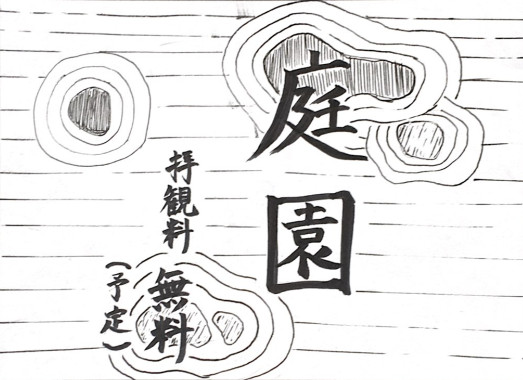 庭園
拝観料
無料
(予定)